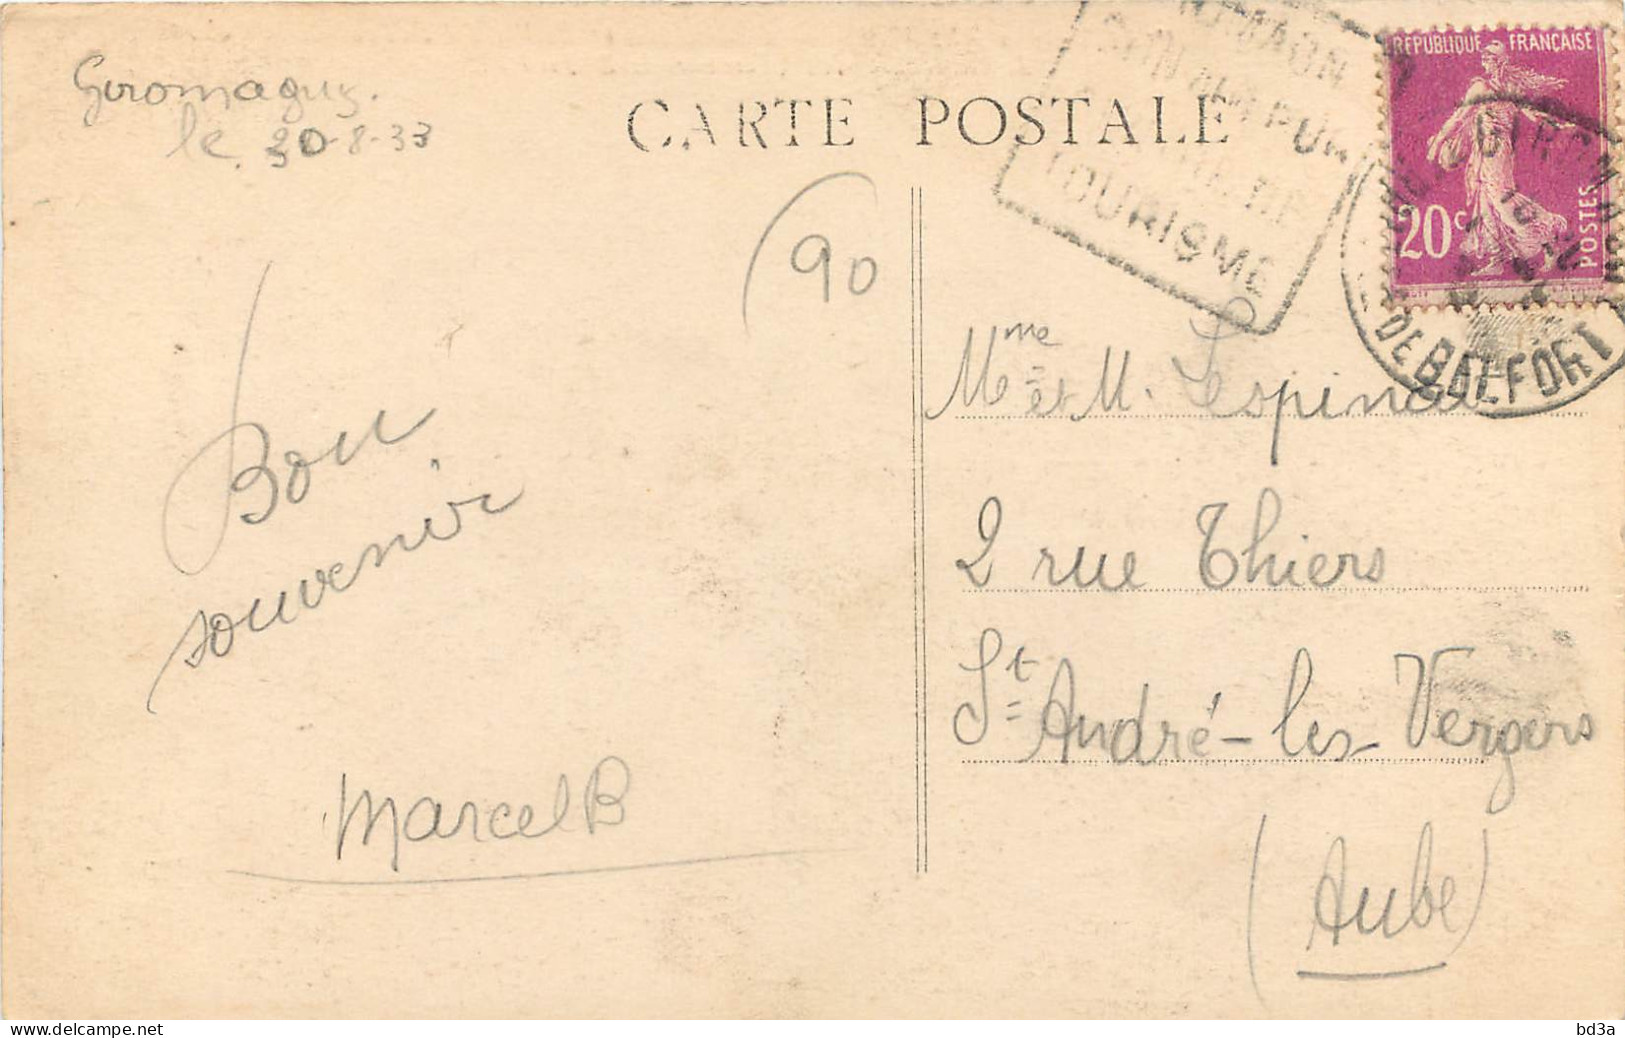 Giromagny.
le 30-8-33
CARTE POSTALE
SON AIR PUR
TOURISME
REPUBLIQUE FRANÇAISE
20c
POSTES
GIROMAGNY
DE BELFORT
90
Bon
souvenir
Marcel B
Mme et M. Lespinas
2 rue Thiers
St André-les-Vergers
(Aube)
www.delcampe.net
bd3a